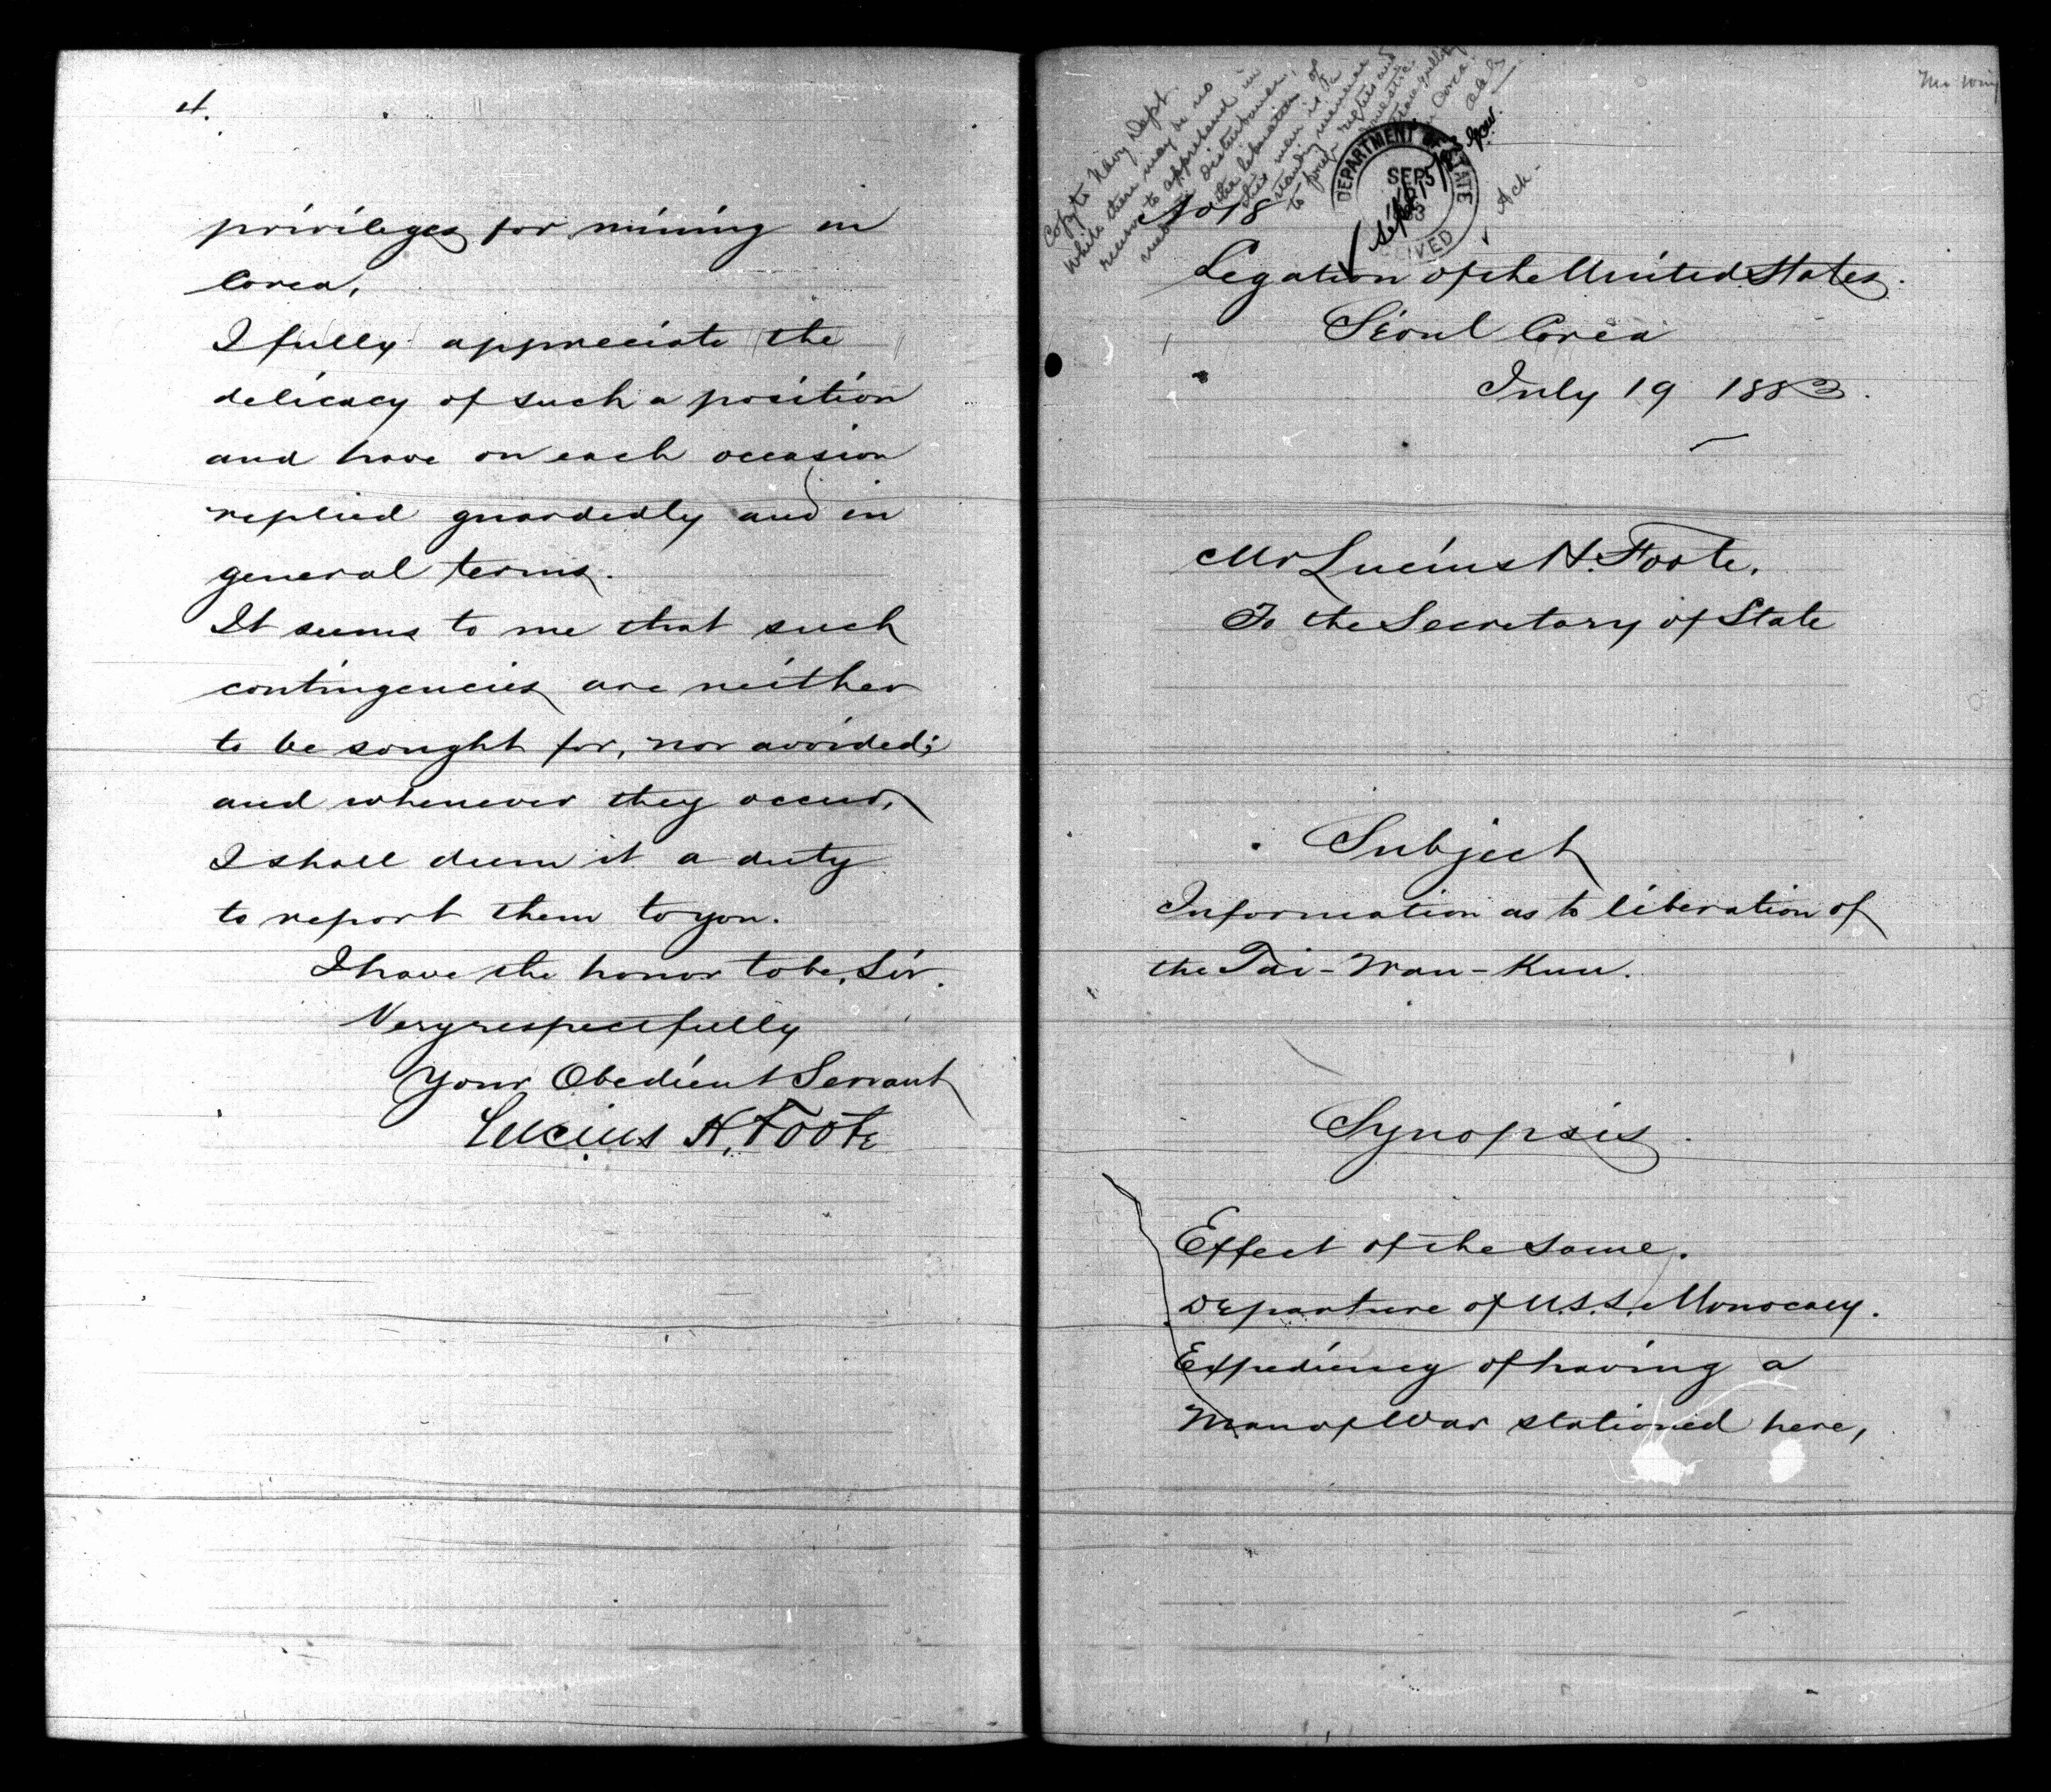 4.
privileges for mining in
Corea,
I fully appreciate the
delicacy of such a position
and have on each occasion
replied guardedly and in
general terms.
It seems to me that such
contingencies are neither
to be sought for, nor avoided;
and whenever they occur,
I shall deem it a duty
to report them to you.
I have the honor to be, Sir.
Very respectfully
Your Obedient Servant
Lucius H. Foote
Copy to Navy Dept.
While there may be no
reason to apprehend im
mediate disturbance,
the liberation of
this man is a
standing menace
to foreign rights and
domestic
tranquillity
in Corea.
DEPARTMENT OF STATE
SEP 15
RECEIVED
Ack-
No 18
Legation of the United States.
Séoul Corea
July 19 1883.
Mr Lucius H. Foote,
To the Secretary of State
Subject
Information as to liberation of
the Tai-Wan-Kun.
Synopsis.
Effect of the same.
Departure of U.S.S. Monocacy.
Expediency of having a
Man of War stationed here,